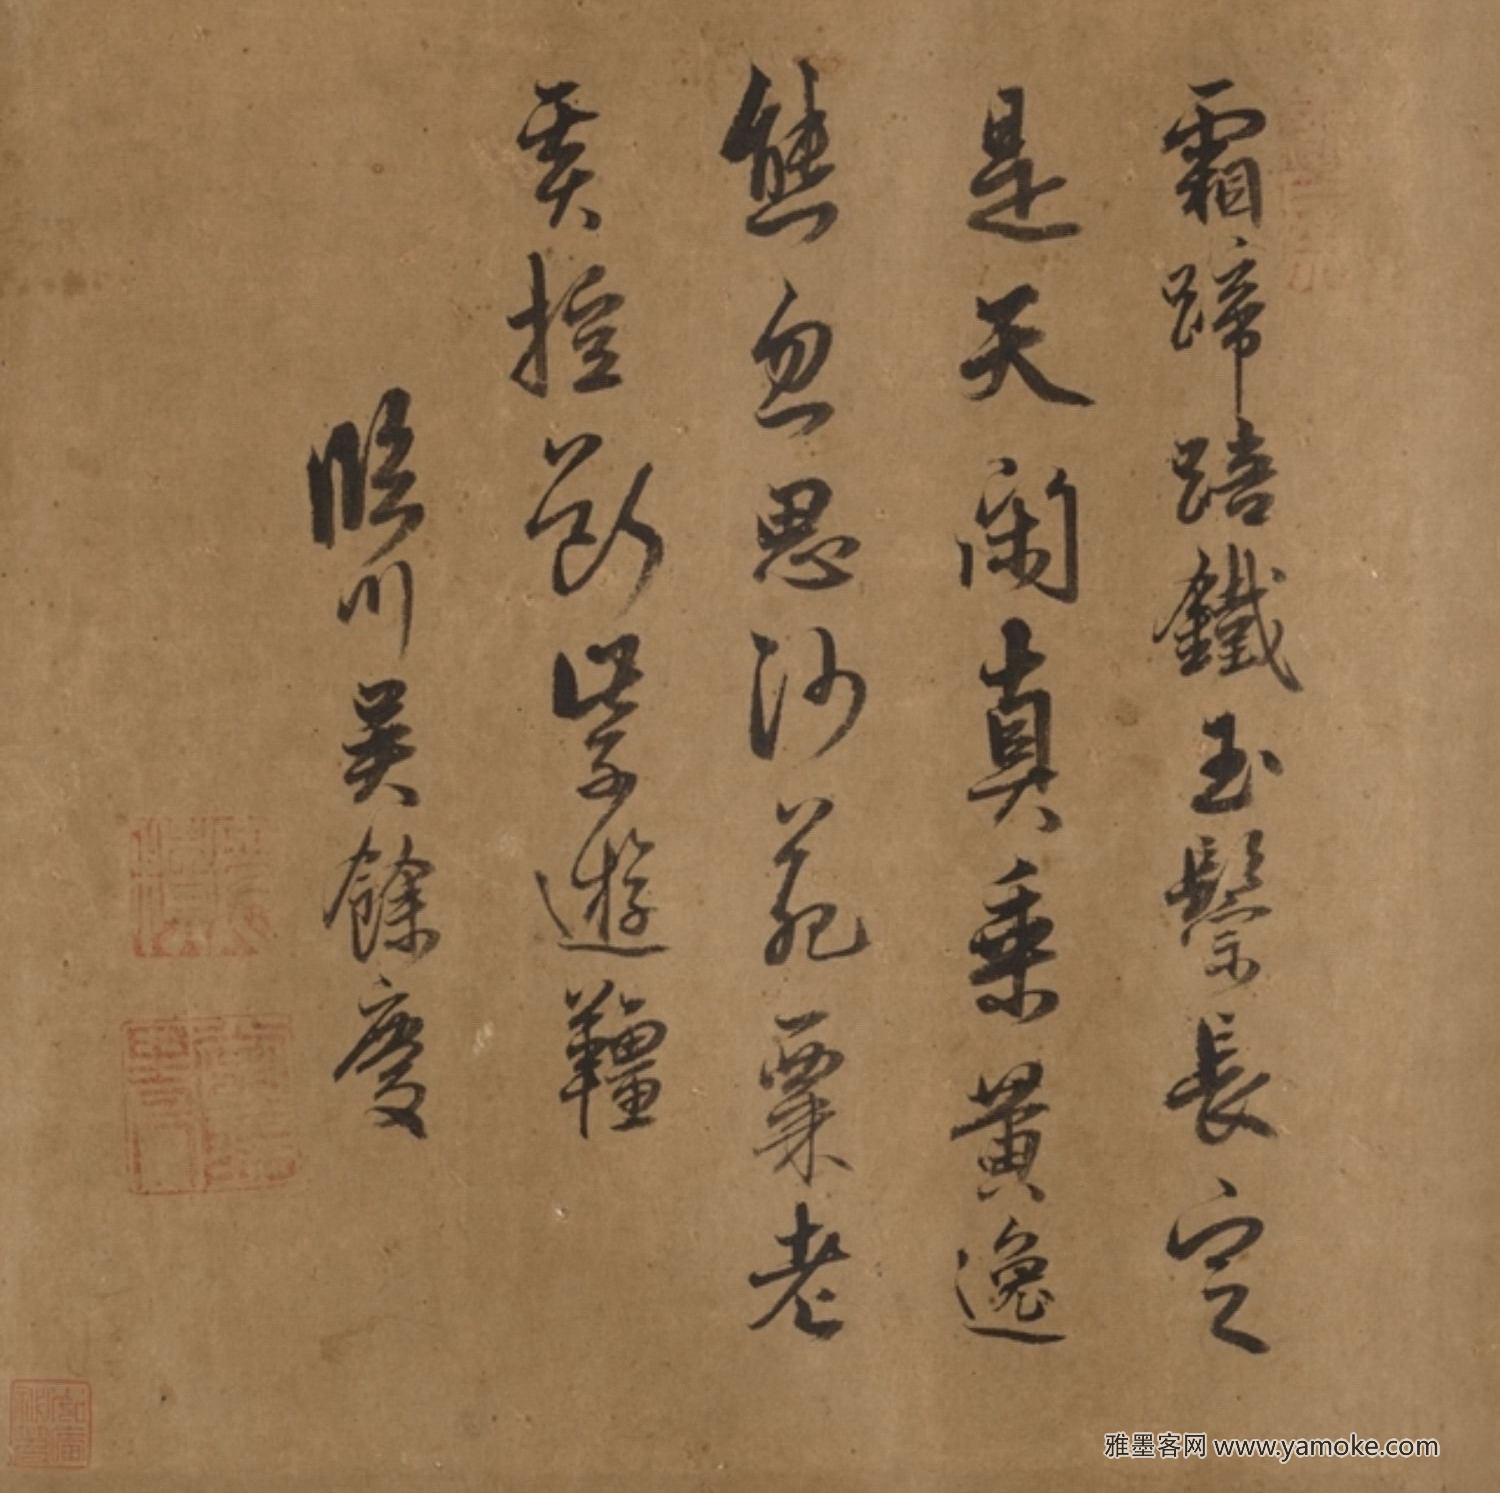 霜蹄踣鐵玉鬃長定
是天閑真乘黄逸
態忽思沙苑粟老
奚控斷紫遊韁
臨川吳餘慶
雅墨客网 www.yamoke.com